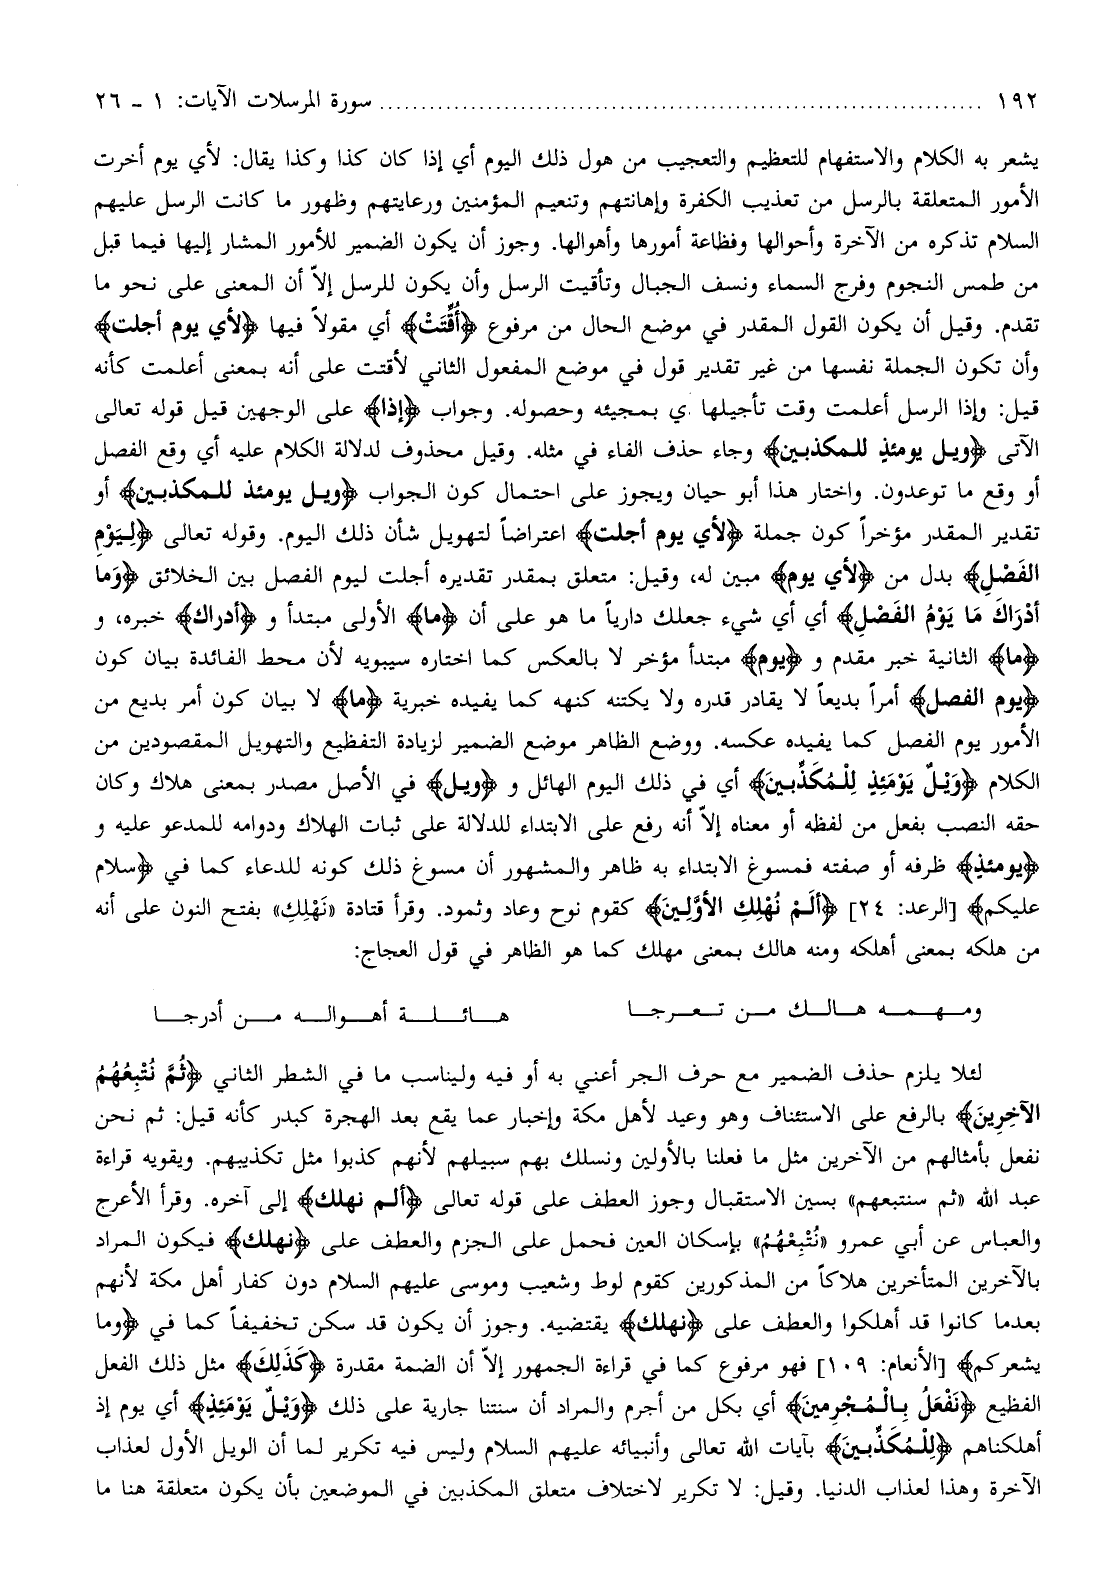 ١٩٢ ........................................................................ سورة المرسلات الآيات: ١ - ٢٦
يشعر به الكلام والاستفهام للتعظيم والتعجيب من هول ذلك اليوم أي إذا كان كذا وكذا يقال: لأي يوم أخرت
الأمور المتعلقة بالرسل من تعذيب الكفرة وإهانتهم وتنعيم المؤمنين ورعايتهم وظهور ما كانت الرسل عليهم
السلام تذكره من الآخرة وأحوالها وفظاعة أمورها وأهوالها. وجوز أن يكون الضمير للأمور المشار إليها فيما قبل
من طمس النجوم وفرج السماء ونسف الجبال وتأقيت الرسل وأن يكون للرسل إلاّ أن المعنى على نحو ما
تقدم. وقيل أن يكون القول المقدر في موضع الحال من مرفوع ﴿أُقِّتَتْ﴾ أي مقولاً فيها ﴿لأي يوم أجلت﴾
وأن تكون الجملة نفسها من غير تقدير قول في موضع المفعول الثاني لأقتت على أنه بمعنى أعلمت كأنه
قيل: وإذا الرسل أعلمت وقت تأجيلها ي بمجيئه وحصوله. وجواب ﴿إذا﴾ على الوجهين قيل قوله تعالى
الآتى ﴿ويل يومئذٍ للمكذبين﴾ وجاء حذف الفاء في مثله. وقيل محذوف لدلالة الكلام عليه أي وقع الفصل
أو وقع ما توعدون. واختار هذا أبو حيان ويجوز على احتمال كون الجواب ﴿ويل يومئذ للمكذبين﴾ أو
تقدير المقدر مؤخراً كون جملة ﴿لأي يوم أجلت﴾ اعتراضاً لتهويل شأن ذلك اليوم. وقوله تعالى ﴿لِيَوْمِ
الفَصْلِ﴾ بدل من ﴿لأي يوم﴾ مبين له، وقيل: متعلق بمقدر تقديره أجلت ليوم الفصل بين الخلائق ﴿وَما
أدْرَاكَ مَا يَوْمُ الفَصْلِ﴾ أي أي شيء جعلك دارياً ما هو على أن ﴿ما﴾ الأولى مبتدأ و ﴿أدراك﴾ خبره، و
﴿ما﴾ الثانية خبر مقدم و ﴿يوم﴾ مبتدأ مؤخر لا بالعكس كما اختاره سيبويه لأن محط الفائدة بيان كون
﴿يوم الفصل﴾ أمراً بديعاً لا يقادر قدره ولا يكتنه كنهه كما يفيده خبرية ﴿ما﴾ لا بيان كون أمر بديع من
الأمور يوم الفصل كما يفيده عكسه. ووضع الظاهر موضع الضمير لزيادة التفظيع والتهويل المقصودين من
الكلام ﴿وَيْلٌ يَوْمَئِذٍ لِلْمُكَذِّبينَ﴾ أي في ذلك اليوم الهائل و ﴿ويل﴾ في الأصل مصدر بمعنى هلاك وكان
حقه النصب بفعل من لفظه أو معناه إلاّ أنه رفع على الابتداء للدلالة على ثبات الهلاك ودوامه للمدعو عليه و
﴿يومئذٍ﴾ ظرفه أو صفته فمسوغ الابتداء به ظاهر والمشهور أن مسوغ ذلك كونه للدعاء كما في ﴿سلام
عليكم﴾ [الرعد: ٢٤] ﴿ألَمْ نُهْلِكِ الأوَّلِينَ﴾ كقوم نوح وعاد وثمود. وقرأ قتادة «نَهْلِكِ» بفتح النون على أنه
من هلكه بمعنى أهلكه ومنه هالك بمعنى مهلك كما هو الظاهر في قول العجاج:
ومهمه هالك من تعرجا هائلة أهواله من أدرجا
لئلا يلزم حذف الضمير مع حرف الجر أعني به أو فيه وليناسب ما في الشطر الثاني ﴿ثُمَّ نُتْبِعُهُمُ
الآخِرِينَ﴾ بالرفع على الاستئناف وهو وعيد لأهل مكة وإخبار عما يقع بعد الهجرة كبدر كأنه قيل: ثم نحن
نفعل بأمثالهم من الآخرين مثل ما فعلنا بالأولين ونسلك بهم سبيلهم لأنهم كذبوا مثل تكذيبهم. ويقويه قراءة
عبد الله «ثم سنتبعهم» بسين الاستقبال وجوز العطف على قوله تعالى ﴿ألم نهلك﴾ إلى آخره. وقرأ الأعرج
والعباس عن أبي عمرو «نُتْبِعْهُمُ» بإسكان العين فحمل على الجزم والعطف على ﴿نهلك﴾ فيكون المراد
بالآخرين المتأخرين هلاكاً من المذكورين كقوم لوط وشعيب وموسى عليهم السلام دون كفار أهل مكة لأنهم
بعدما كانوا قد أهلكوا والعطف على ﴿نهلك﴾ يقتضيه. وجوز أن يكون قد سكن تخفيفاً كما في ﴿وما
يشعركم﴾ [الأنعام: ١٠٩] فهو مرفوع كما في قراءة الجمهور إلاّ أن الضمة مقدرة ﴿كَذَلِكَ﴾ مثل ذلك الفعل
الفظيع ﴿نَفْعَلُ بِالْمُجْرِمينَ﴾ أي بكل من أجرم والمراد أن سنتنا جارية على ذلك ﴿وَيْلٌ يَوْمَئِذٍ﴾ أي يوم إذ
أهلكناهم ﴿لِلْمُكَذِّبينَ﴾ بآيات الله تعالى وأنبيائه عليهم السلام وليس فيه تكرير لما أن الويل الأول لعذاب
الآخرة وهذا لعذاب الدنيا. وقيل: لا تكرير لاختلاف متعلق المكذبين في الموضعين بأن يكون متعلقة هنا ما